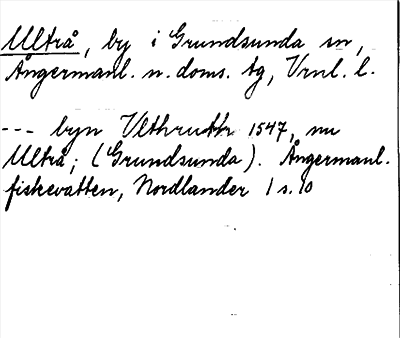 Ultrå, by i Grundsunda sn,
Ångermanl. n. doms. tg, Vrnl. l.
--- byn Vlthrutth 1547, nu
Ultrå; (Grundsunda). Ångermanl.
fiskevatten, Nordlander 1 s. 10